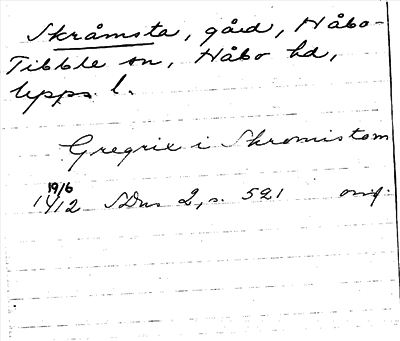 Skråmsta, gård, Håbo-
Tibble sn, Håbo hd,
Upps. l.
Gregrix i Skromistom
19/6
1412 SDns 2, s. 521 orig.